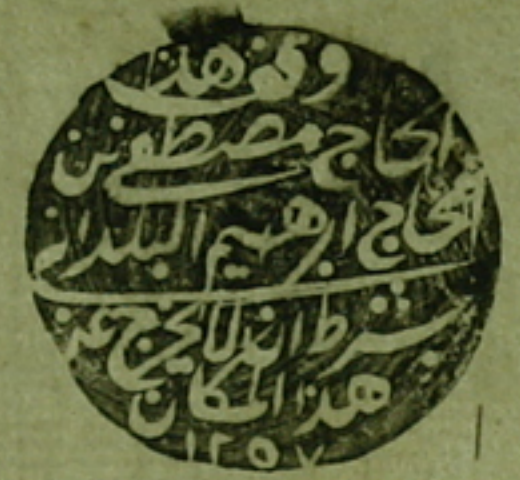 وقف هذا
الحاج مصطفى بن
الحاج ابرهيم البلداني
بشرط انه لا يخرج عن
هذا المكان
١٢٥٧